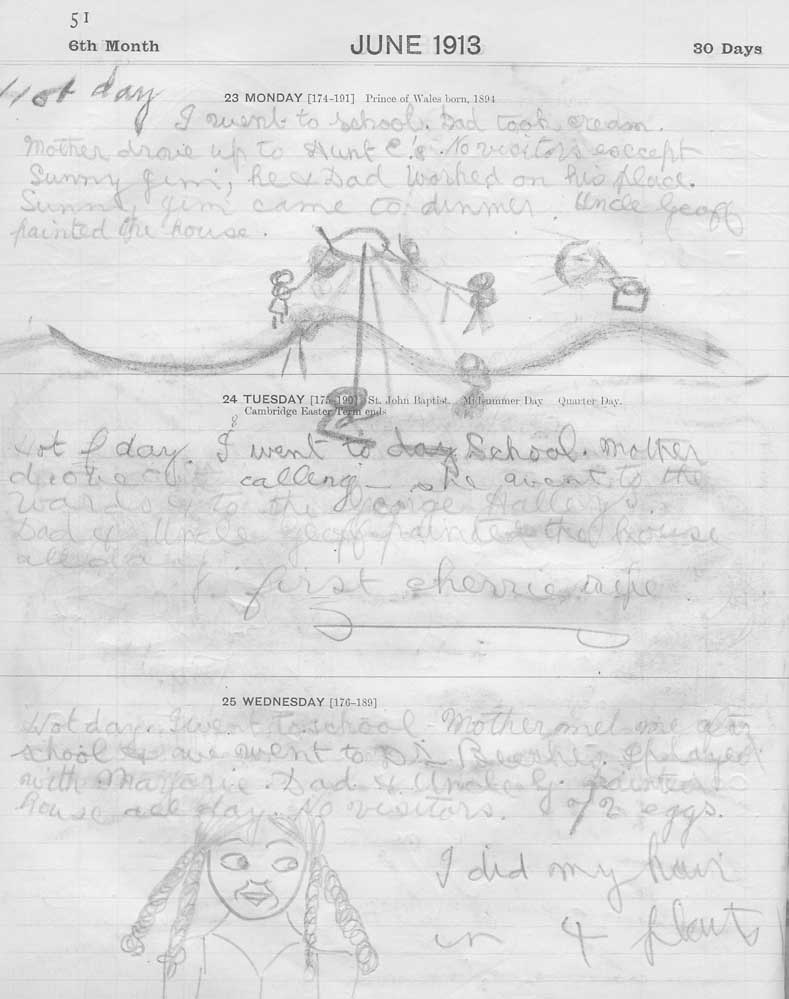 51
6th Month JUNE 1913 30 Days
Hot day
23 MONDAY [174-191] Prince of Wales born, 1894
I went to school. Dad took cream.
Mother drove up to Aunt C's. No visitors except
Sunny Jim, he & Dad worked on his place.
Sunny Jim came to dinner. Uncle Geoff
painted the house.
24 TUESDAY [175-190] St. John Baptist. Midsummer Day Quarter Day.
Cambridge Easter Term ends
Hot day. I went to day School. Mother
calling - she went to the
wards & to the George Halleys.
Dad & Uncle Geoff painted the house
all day.
first cherrie ripe
25 WEDNESDAY [176-189]
Hot day. I went to school - Mother met me after
school & we went to I played
with Marjorie. Dad & Uncle G. painted
house all day. No visitors. eggs.
I did my hair
in 4 plaits